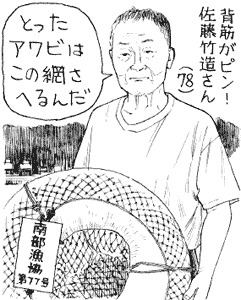 背筋がピン!
佐藤竹造さん
(78)
とった
アワビは
この網さ
へるんだ
南部漁協
第77号